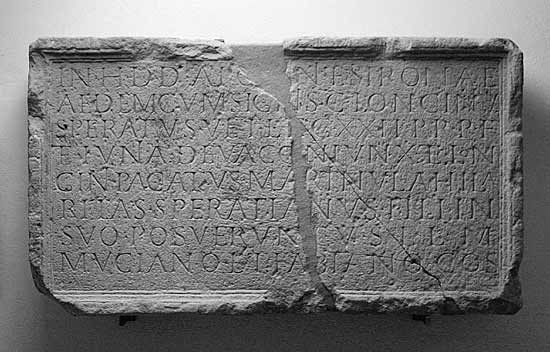 IN H D D NI ET SIRONAE
AEDEM CVM SIGNIS C LONGINIVS
SPERATVS VET LEG XXII PR P F
ET IVNIA DEVA CONIVNX ET LON
GINI PACATVS MARTINVLA HILA
RITAS SPERATIANVS FILI IN
SVO POSVERVNT V S L L M
MVCIANO ET FABIANO COS